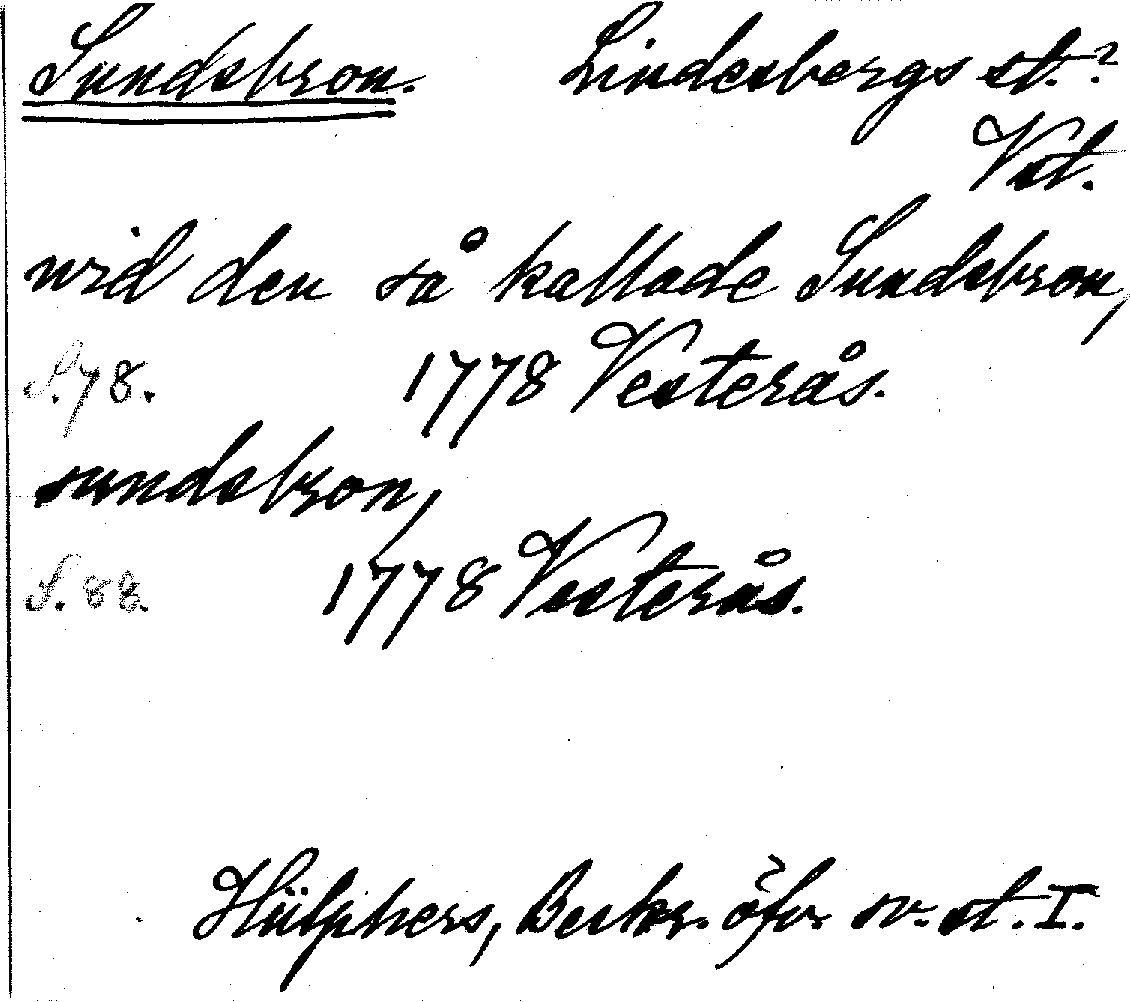 Sundsbron. Lindesbergs st.?
Vst.
wid den så kallade Sundsbron,
S. 78. 1778 Vesterås.
sundsbron,
S. 88. 1778 Vesterås.
Hülphers, Beskr. öfv. sv. st. I.